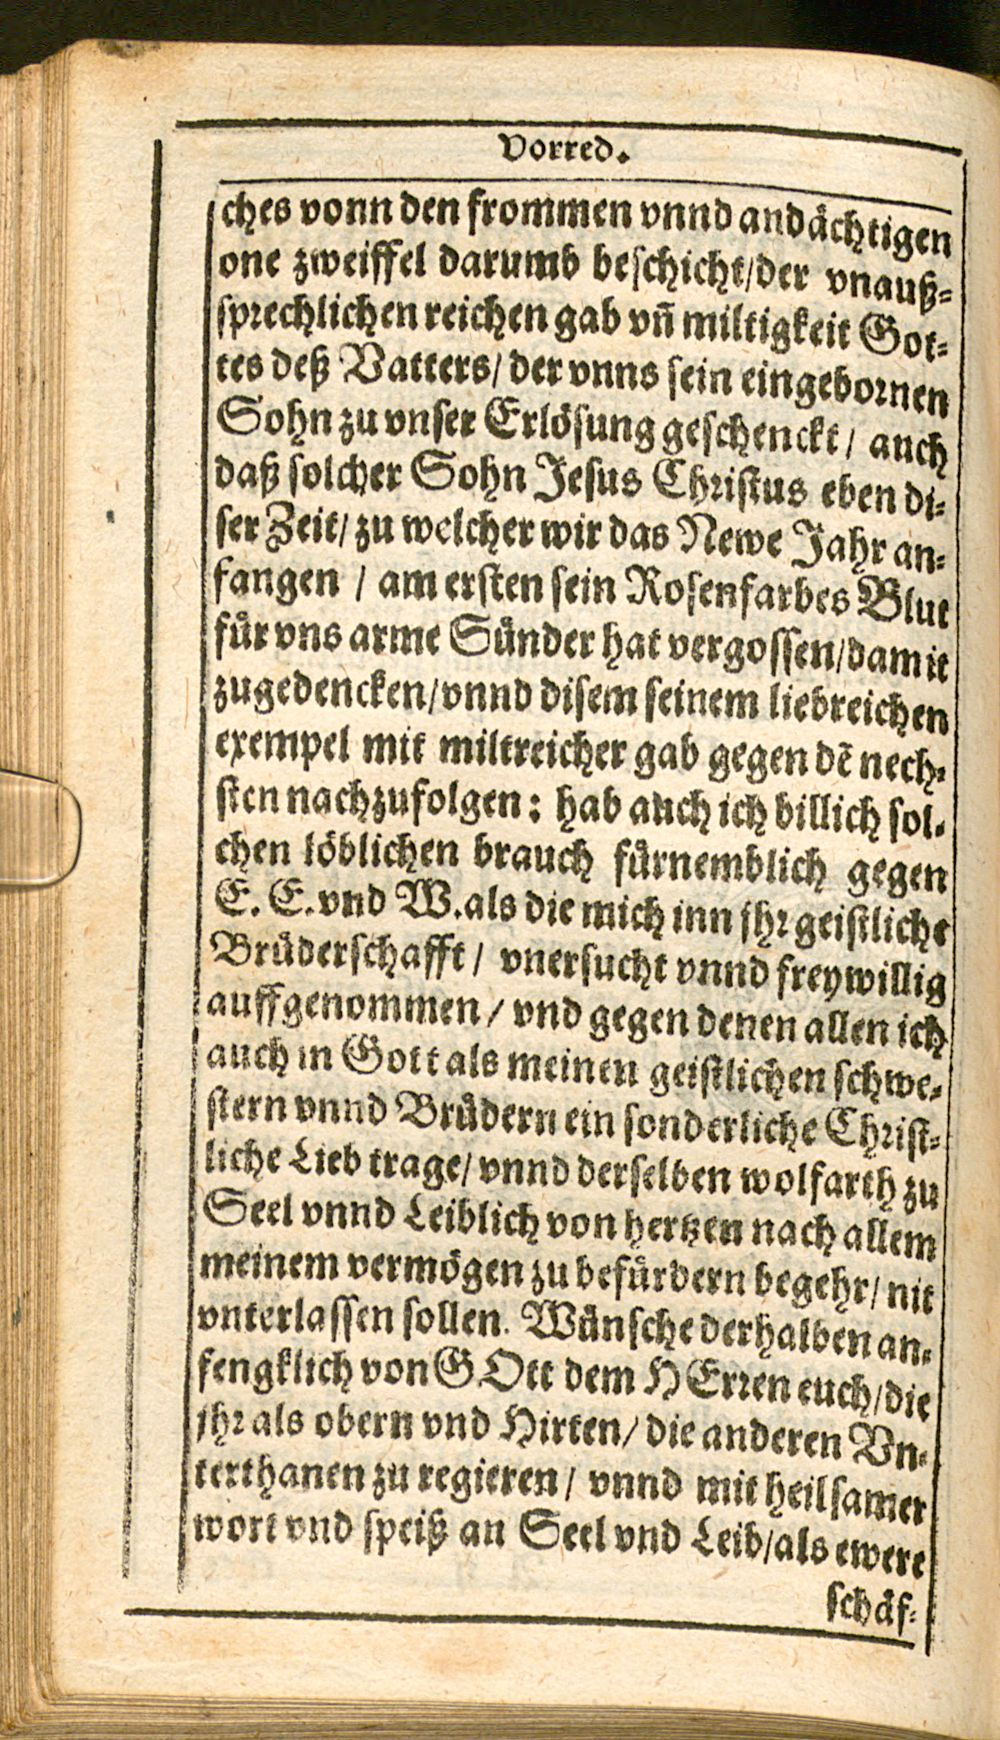 Vorred.
ches vonn den frommen vnnd andächtigen
one zweiffel darumb beschicht/der vnauß-
sprechlichen reichen gab vñ miltigkeit Got-
tes deß Vatters/ der vnns sein eingebornen
Sohn zu vnser Erlösung geschenckt/ auch
daß solcher Sohn Jesus Christus eben di-
ser Zeit/ zu welcher wir das Newe Jahr an-
fangen / am ersten sein Rosenfarbes Blut
für vns arme Sünder hat vergossen/damit
zugedencken/vnnd disem seinem liebreichen
exempel mit miltreicher gab gegen dẽ nech-
sten nachzufolgen: hab auch ich billich sol-
chen löblichen brauch fürnemblich gegen
E. E. vnd W. als die mich inn jhr geistliche
Brüderschafft/ vnersucht vnnd freywillig
auffgenommen/ vnd gegen denen allen ich
auch in Gott als meinen geistlichen schwe-
stern vnnd Brüdern ein sonderliche Christ-
liche Lieb trage/ vnnd derselben wolfarth zu
Seel vnnd Leiblich von hertzen nach allem
meinem vermögen zu befürdern begehr/ nit
vnterlassen sollen. Wünsche derhalben an-
fengklich von GOtt dem HErren euch/die
jhr als obern vnd Hirten/ die anderen Vn-
terthanen zu regieren/ vnnd mit heilsamer
wort vnd speiß an Seel vnd Leib/als ewere
schäf-